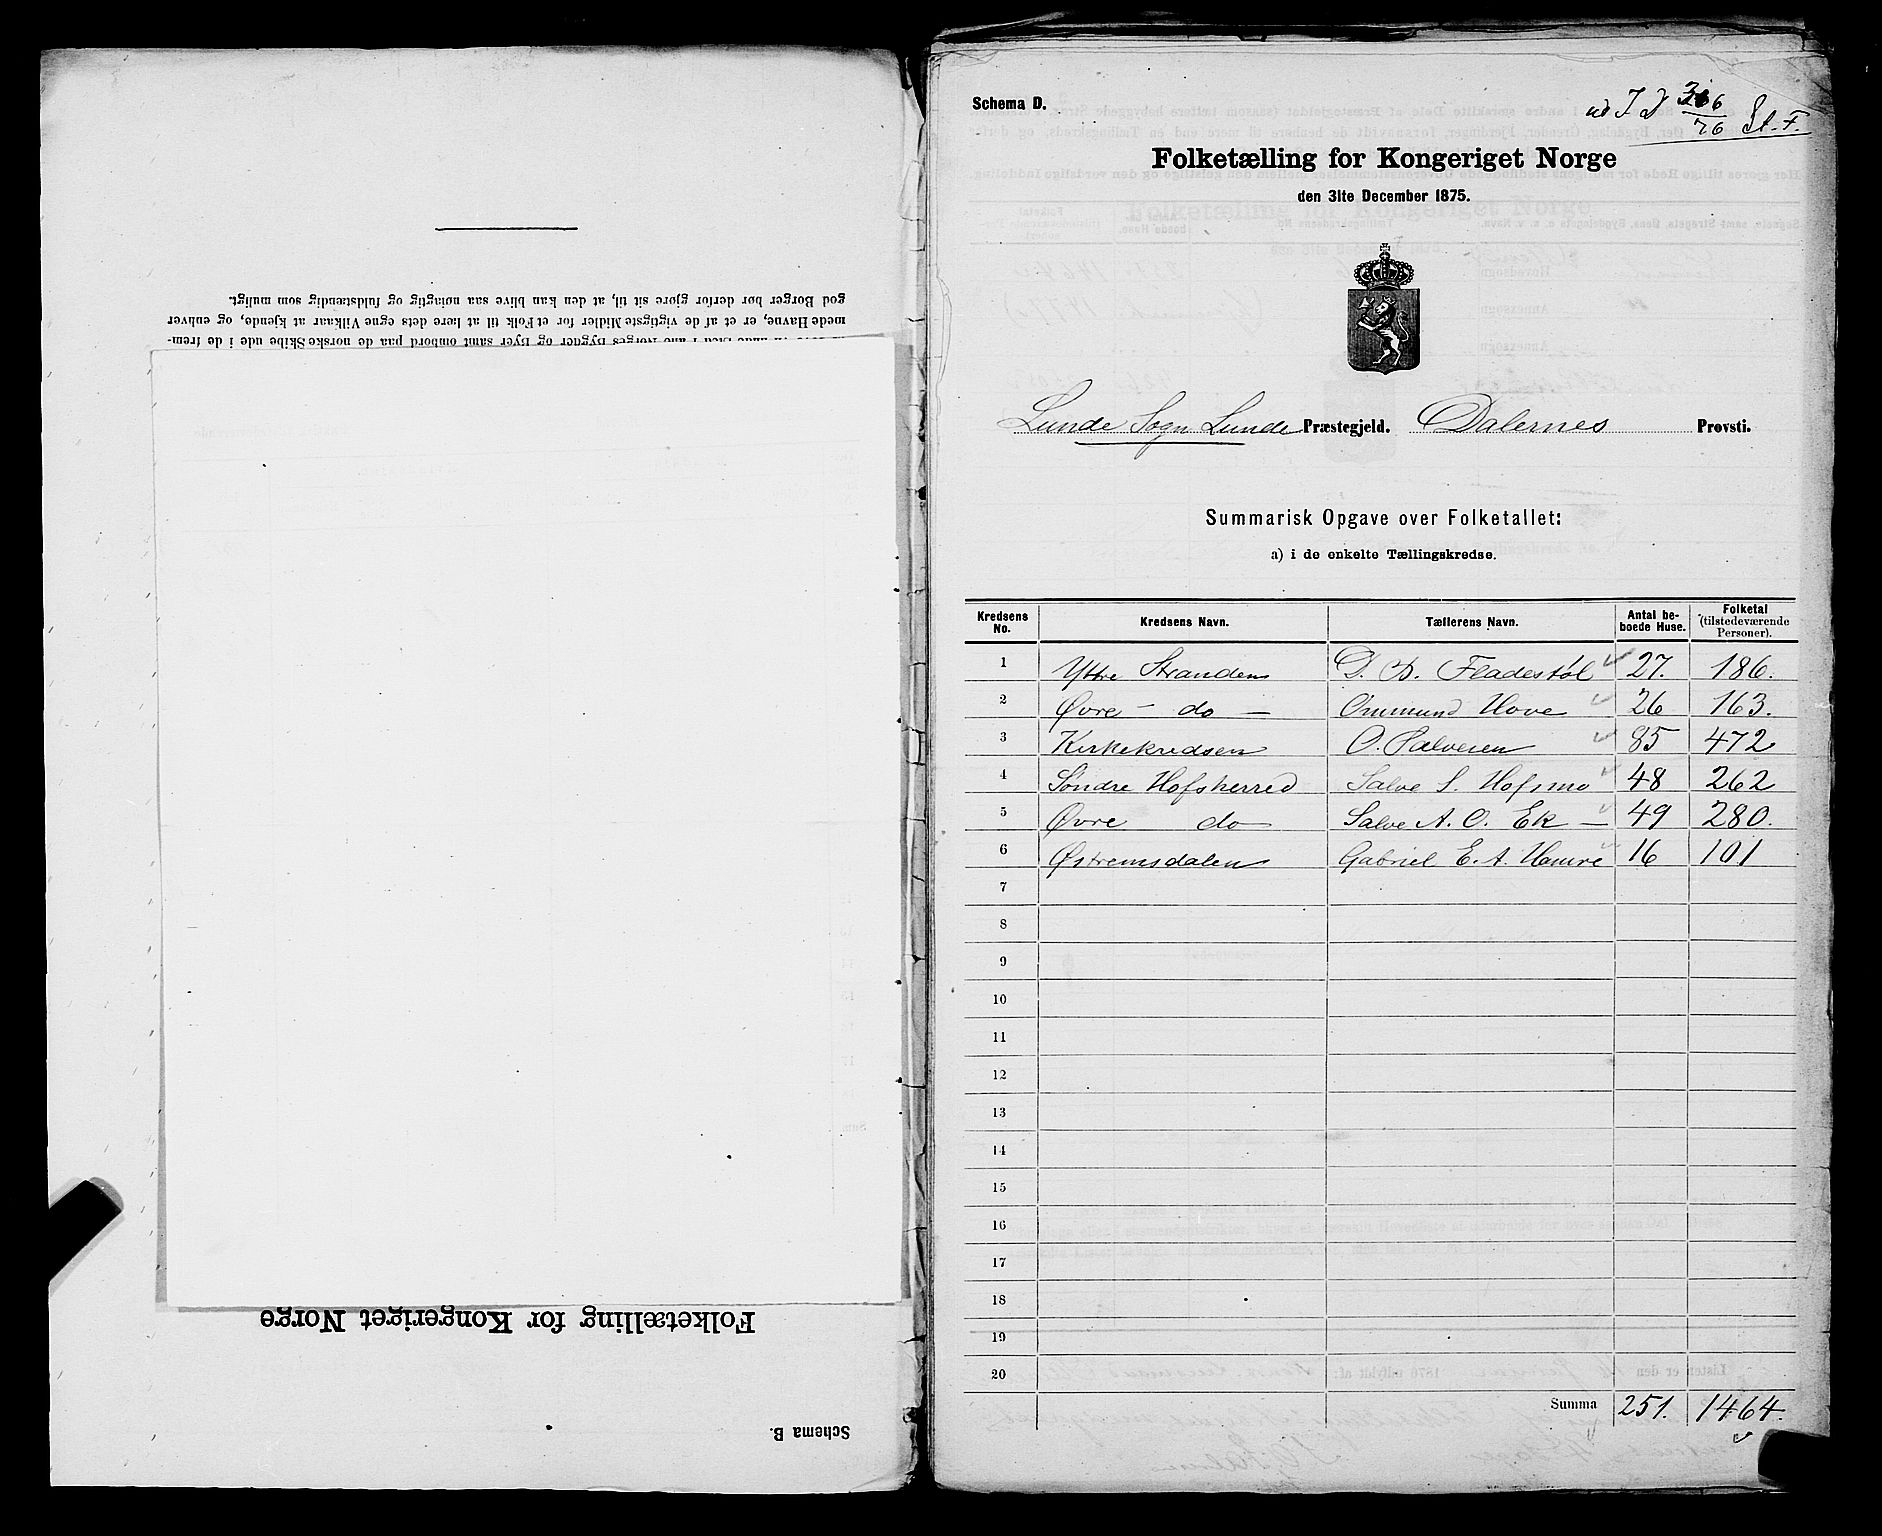 mede Havne, er et af de vigtigste Midler for et Folk til at lære dets egne Vilkaar at kjende, og enhver
god Borger bør derfor gjøre sit til, at den kan blive saa nøiagtig og fuldstændig som muligt.
Folketælling for Kongeriget Norge
Schema B.
Schema D.
St. F.
Folketælling for Kongeriget Norge
den 31te December 1875.
Lunde Sogn Lunde Præstegjeld. Dalernes Provsti.
Summarisk Opgave over Folketallet:
a) i de enkelte Tællingskredse.
Kredsens No. Kredsens Navn. Tællerens Navn. Antal beboede Huse. Folketal (tilstedeværende Personer).
1 Yttre Stranden D. D. Fladestøl 27. 186.
2 Øvre - do - Ommund Hove 26 163.
3 Kirkekredsen O. Salvesen 85 472
4 Søndre Hofsherred Salve S. Hofsmo 48 262
5 Øvre do Salve A. O. Ek 49 280.
6 Østremsdalen Gabriel E. A. Hamre 16 101
7
8
9
10
11
12
13
14
15
16
17
18
19
20
Summa 251. 1464.